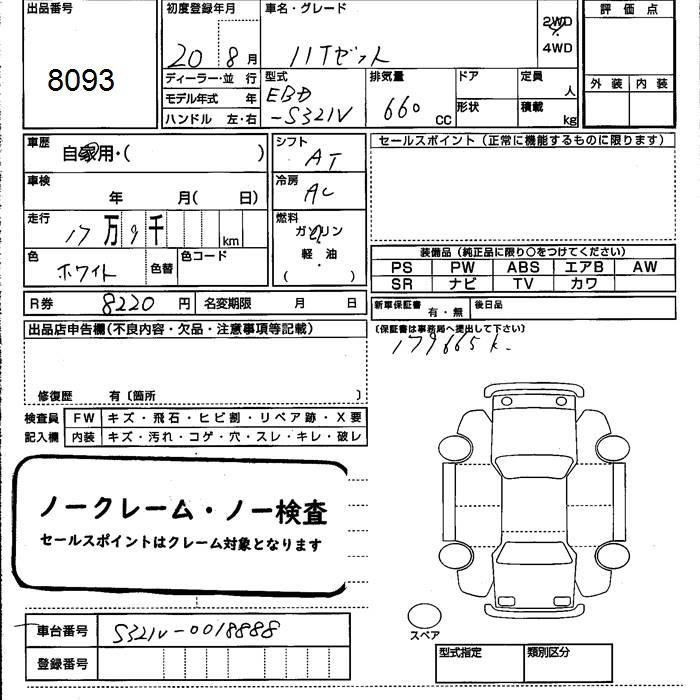 出品番号 初度登録年月 車名・グレード 評価点
8093 20 8月 ハイゼット 2WD
4WD
ディーラー・並行 型式 排気量 ドア 定員 人 外装 内装
モデル年式 年 EBD 660 CC 形状 積載 kg
ハンドル 左・右 -S321V
車歴 自家用・( ) シフト AT セールスポイント(正常に機能するものに限ります)
車検 年 月( 日) 冷房 AC
走行 17万9千 km 燃料 ガソリン
軽・油
( )
色 ホワイト 色替 色コード 装備品(純正品に限り○をつけてください)
PS PW ABS エアB AW
SR ナビ TV カワ
R券 8220円 名変期限 月 日 新車保証書 有・無 後日品
出品店申告欄(不良内容・欠品・注意事項等記載) (保証書は事務局へ提出して下さい)
179665k.
修復歴 有〔箇所 〕
検査員 FW キズ・飛石・ヒビ割・リペア跡・X要
記入欄 内装 キズ・汚れ・コゲ・穴・スレ・キレ・破レ
ノークレーム・ノー検査
セールスポイントはクレーム対象となります
車台番号 S321V-0018888 スペア
登録番号 型式指定 類別区分